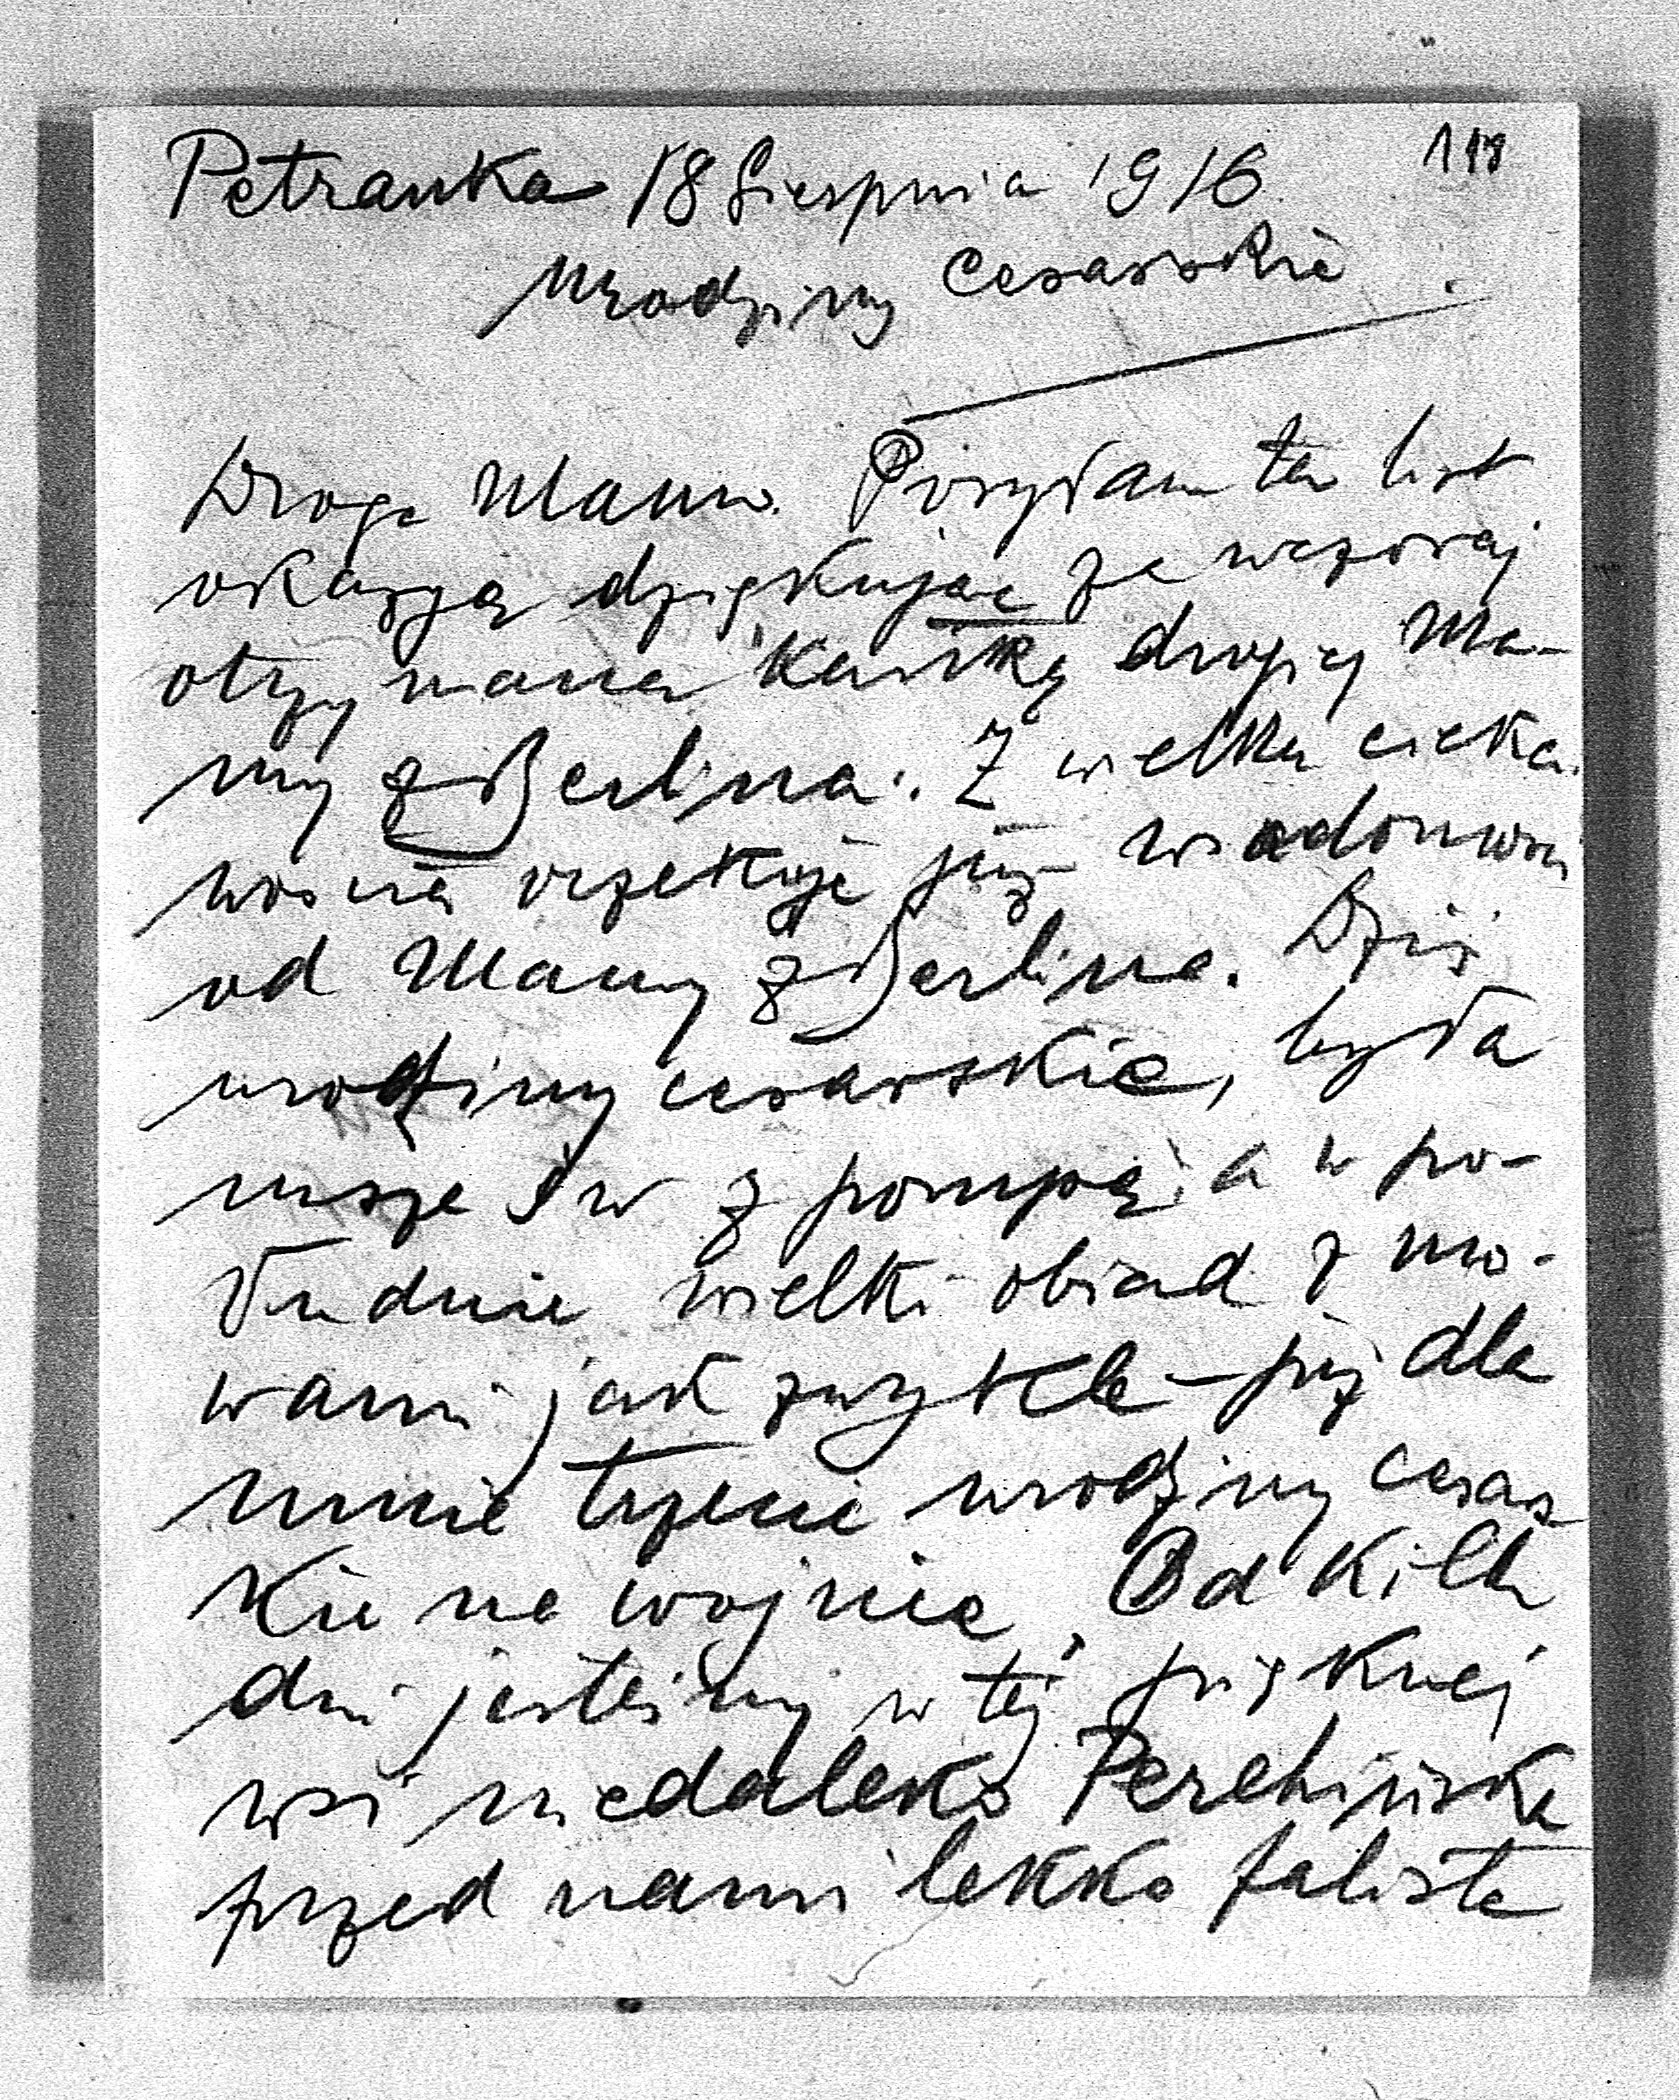 118
Petranka 18 Sierpnia 1916
Urodziny Cesarskie.
Droga Mamo. Posyłam ten list
okazyą dziękując za wczoraj
otrzymaną kartkę drogiej Ma-
my z Berlina. Z wielką cieka-
wością oczekuję już wiadomości
od Mamy z Berlina. Dziś
urodziny cesarskie, była
msza św z pompą, a w po-
łudnie wielki obiad z mo-
wami jak zwykle – już dla
mnie trzecie urodziny cesar-
skie na wojnie. Od kilku
dni jesteśmy w tej pięknej
wsi niedaleko Perehińska
przed nami lekko falista